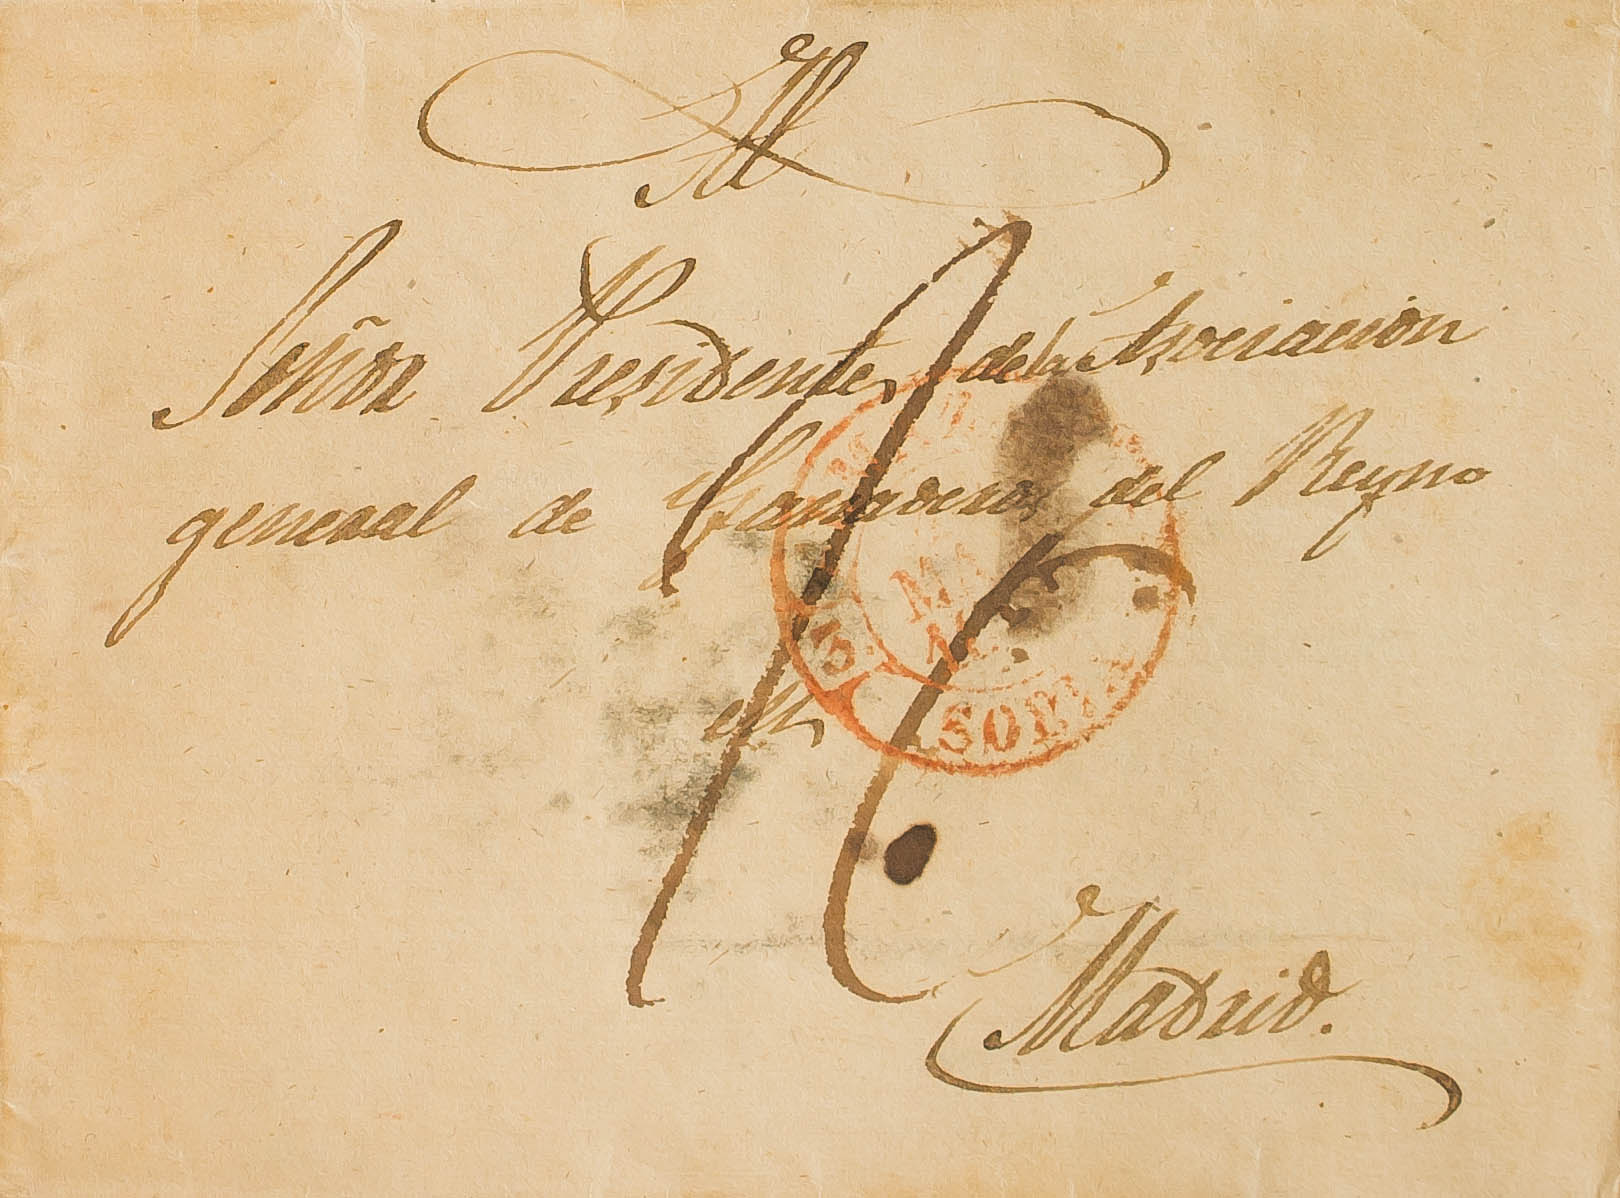 Al
Señor Presidente, de la Asociacion
general de Ganaderos del Reyno
en
Madrid.
3
SORIA